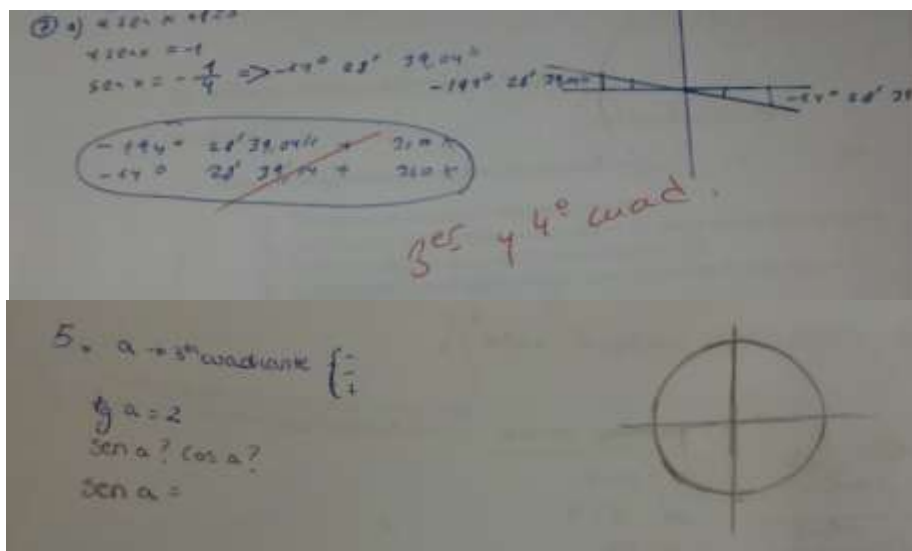 ② a) 4 sen x +1=0
4 sen x = -1
sen x = - 1/4 => -14° 28' 39,04"
-194° 28' 39,04"
-14° 28' 39
-194° 28' 39,04" + 360 k
-14° 28' 39,04 + 360 k
3er y 4° cuad.
5. a → 3er cuadrante { - - +
tg a = 2
sen a? cos a?
sen a =